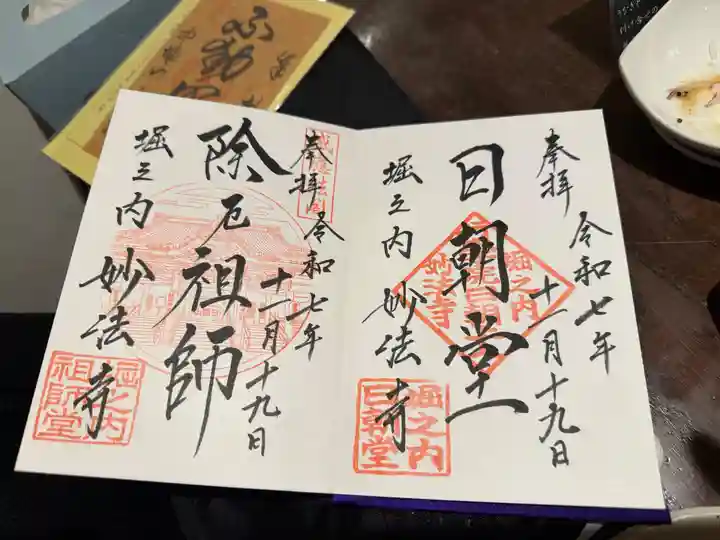 奉拝
令和七年
十一月十九日
日朝堂
堀之内
妙法寺
堀之内
妙法寺
堀之内
日朝堂
奉拝
令和七年
十一月十九日
除厄
祖師
堀之内
妙法寺
堀之内
祖師堂